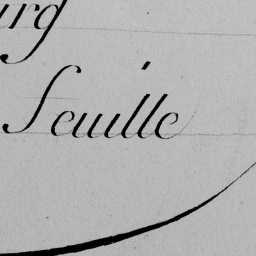 urg
feuille